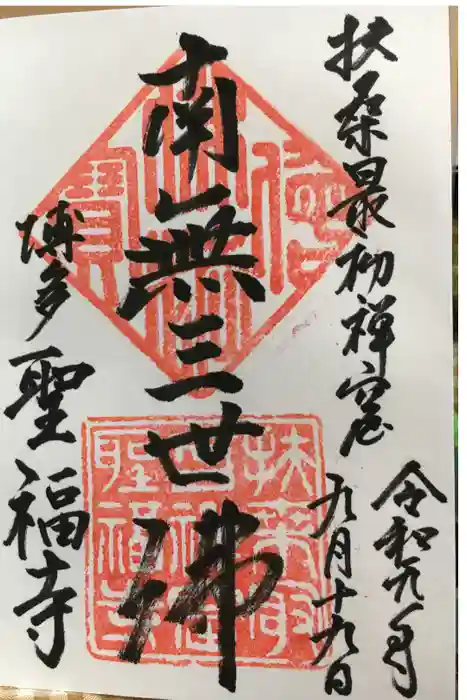 扶桑最初禅窟
令和元年
九月十九日
南無三世佛
博多
聖福寺
扶桑最
初禅窟
聖福寺